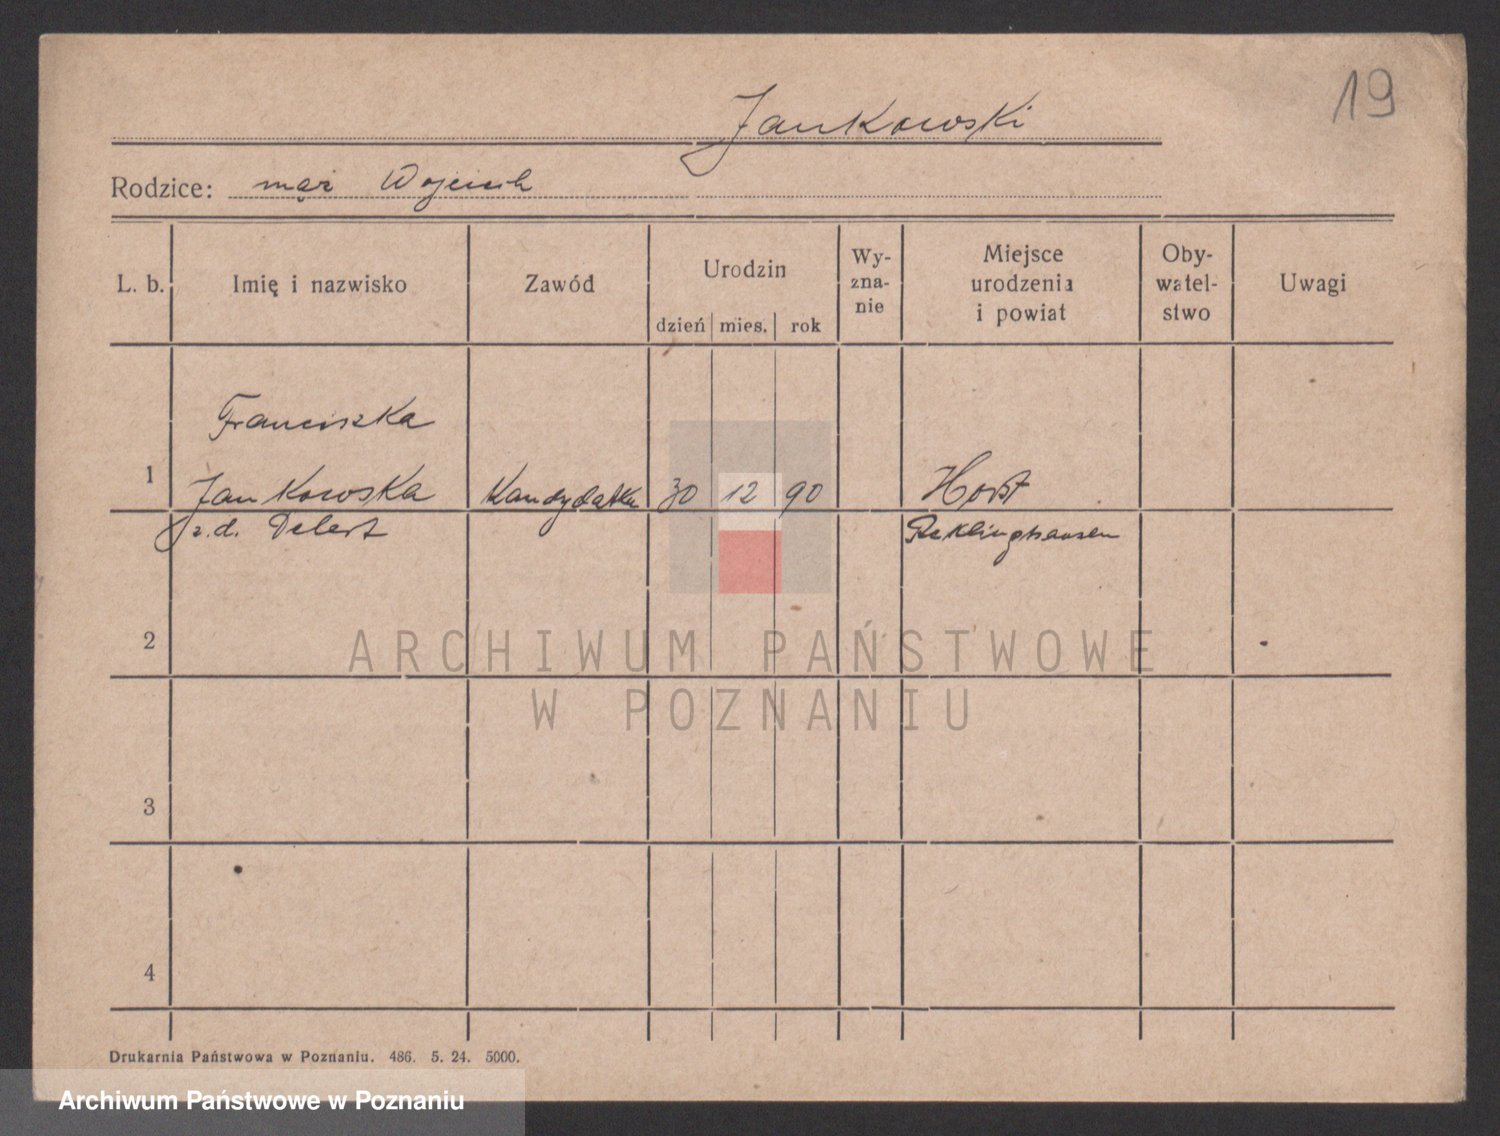 19
Jankowski
Rodzice: mąż Wojciech
L. b. Imię i nazwisko Zawód Urodzin dzień mies. rok Wy-zna-nie Miejsce urodzenia i powiat Oby-watel-stwo Uwagi
Franciszka
1 Jankowska Kandydatka 30 12 90 Horst
z.d. Delert Reklinghausen
2
ARCHIWUM PAŃSTWOWE
W POZNANIU
3
4
Drukarnia Państwowa w Poznaniu. 486. 5. 24. 5000.
Archiwum Państwowe w Poznaniu